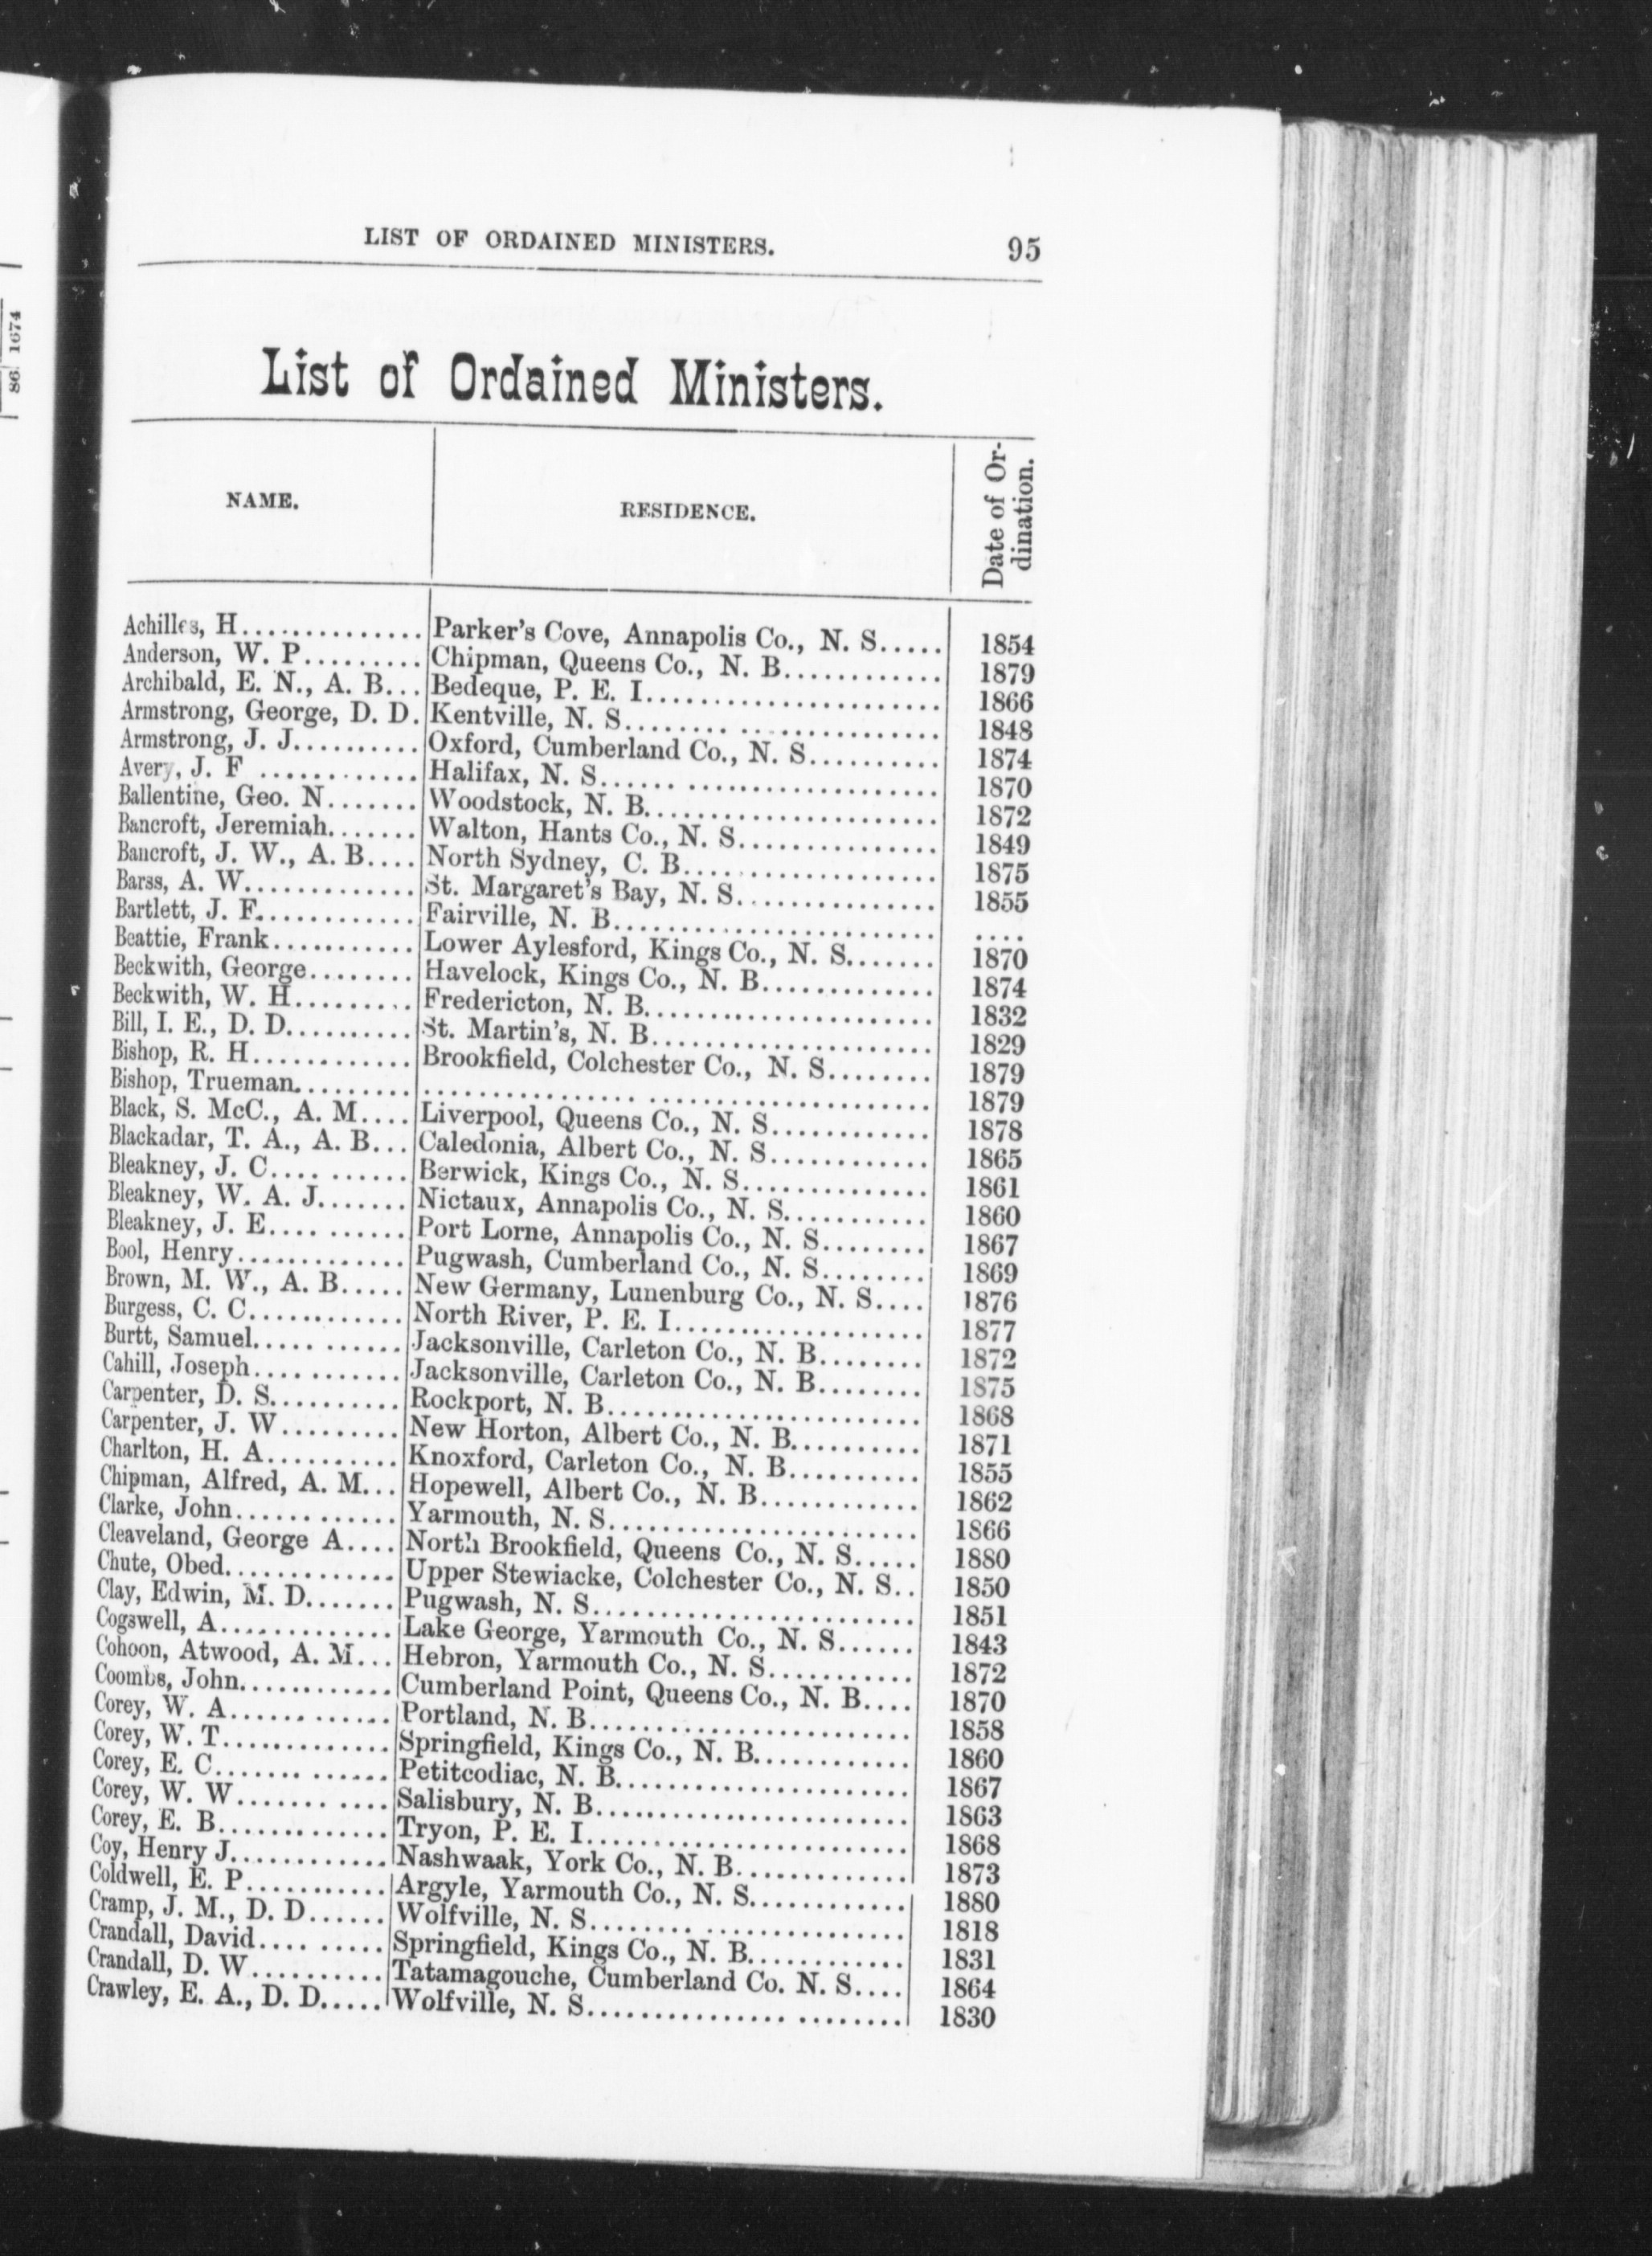 86 1674
LIST OF ORDAINED MINISTERS. 95
List of Ordained Ministers.
NAME. RESIDENCE. Date of Or-
dination.
Achilles, H.............. Parker's Cove, Annapolis Co., N. S..... 1854
Anderson, W. P......... Chipman, Queens Co., N. B............ 1879
Archibald, E. N., A. B... Bedeque, P. E. I...................... 1866
Armstrong, George, D. D. Kentville, N. S........ ................ 1848
Armstrong, J. J.......... Oxford, Cumberland Co., N. S.......... 1874
Avery, J. F ............ Halifax, N. S...... ................... 1870
Ballentine, Geo. N....... Woodstock, N. B...................... 1872
Bancroft, Jeremiah....... Walton, Hants Co., N. S............... 1849
Bancroft, J. W., A. B.... North Sydney, C. B.... ................ 1875
Barss, A. W............. St. Margaret's Bay, N. S............... 1855
Bartlett, J. F............ Fairville, N. B........................ ....
Beattie, Frank........... Lower Aylesford, Kings Co., N. S....... 1870
Beckwith, George........ Havelock, Kings Co., N. B............. 1874
Beckwith, W. H......... Fredericton, N. B...................... 1832
Bill, I. E., D. D.......... St. Martin's, N. B..................... 1829
Bishop, R. H............ Brookfield, Colchester Co., N. S........ 1879
Bishop, Trueman.......... .................. ..................... 1879
Black, S. McC., A. M.... Liverpool, Queens Co., N. S............ 1878
Blackadar, T. A., A. B... Caledonia, Albert Co., N. S............ 1865
Bleakney, J. C.... ...... Berwick, Kings Co., N. S............... 1861
Bleakney, W. A. J....... Nictaux, Annapolis Co., N. S........... 1860
Bleakney, J. E.... ...... Port Lorne, Annapolis Co., N. S........ 1867
Bool, Henry............. Pugwash, Cumberland Co., N. S........ 1869
Brown, M. W., A. B..... New Germany, Lunenburg Co., N. S.... 1876
Burgess, C. C............ North River, P. E. I................... 1877
Burtt, Samuel..... ...... Jacksonville, Carleton Co., N. B........ 1872
Cahill, Joseph........... Jacksonville, Carleton Co., N. B........ 1875
Carpenter, D. S.......... Rockport, N. B........................ 1868
Carpenter, J. W......... New Horton, Albert Co., N. B.......... 1871
Charlton, H. A.......... Knoxford, Carleton Co., N. B.......... 1855
Chipman, Alfred, A. M... Hopewell, Albert Co., N. B............ 1862
Clarke, John............ Yarmouth, N. S....................... 1866
Cleaveland, George A.... North Brookfield, Queens Co., N. S..... 1880
Chute, Obed............. Upper Stewiacke, Colchester Co., N. S.. 1850
Clay, Edwin, M. D....... Pugwash, N. S........................ 1851
Cogswell, A............. Lake George, Yarmouth Co., N. S...... 1843
Cohoon, Atwood, A. M... Hebron, Yarmouth Co., N. S........... 1872
Coombs, John............ Cumberland Point, Queens Co., N. B.... 1870
Corey, W. A............ Portland, N. B........................ 1858
Corey, W. T............. Springfield, Kings Co., N. B............ 1860
Corey, E. C....... ...... Petitcodiac, N. B...................... 1867
Corey, W. W....... .... Salisbury, N. B........................ 1863
Corey, E. B............. Tryon, P. E. I......................... 1868
Coy, Henry J............ Nashwaak, York Co., N. B............. 1873
Coldwell, E. P........... Argyle, Yarmouth Co., N. S............ 1880
Cramp, J. M., D. D...... Wolfville, N. S........ ............... 1818
Crandall, David.... ..... Springfield, Kings Co., N. B............ 1831
Crandall, D. W.......... Tatamagouche, Cumberland Co. N. S.... 1864
Crawley, E. A., D. D..... Wolfville, N. S............... ........ 1830